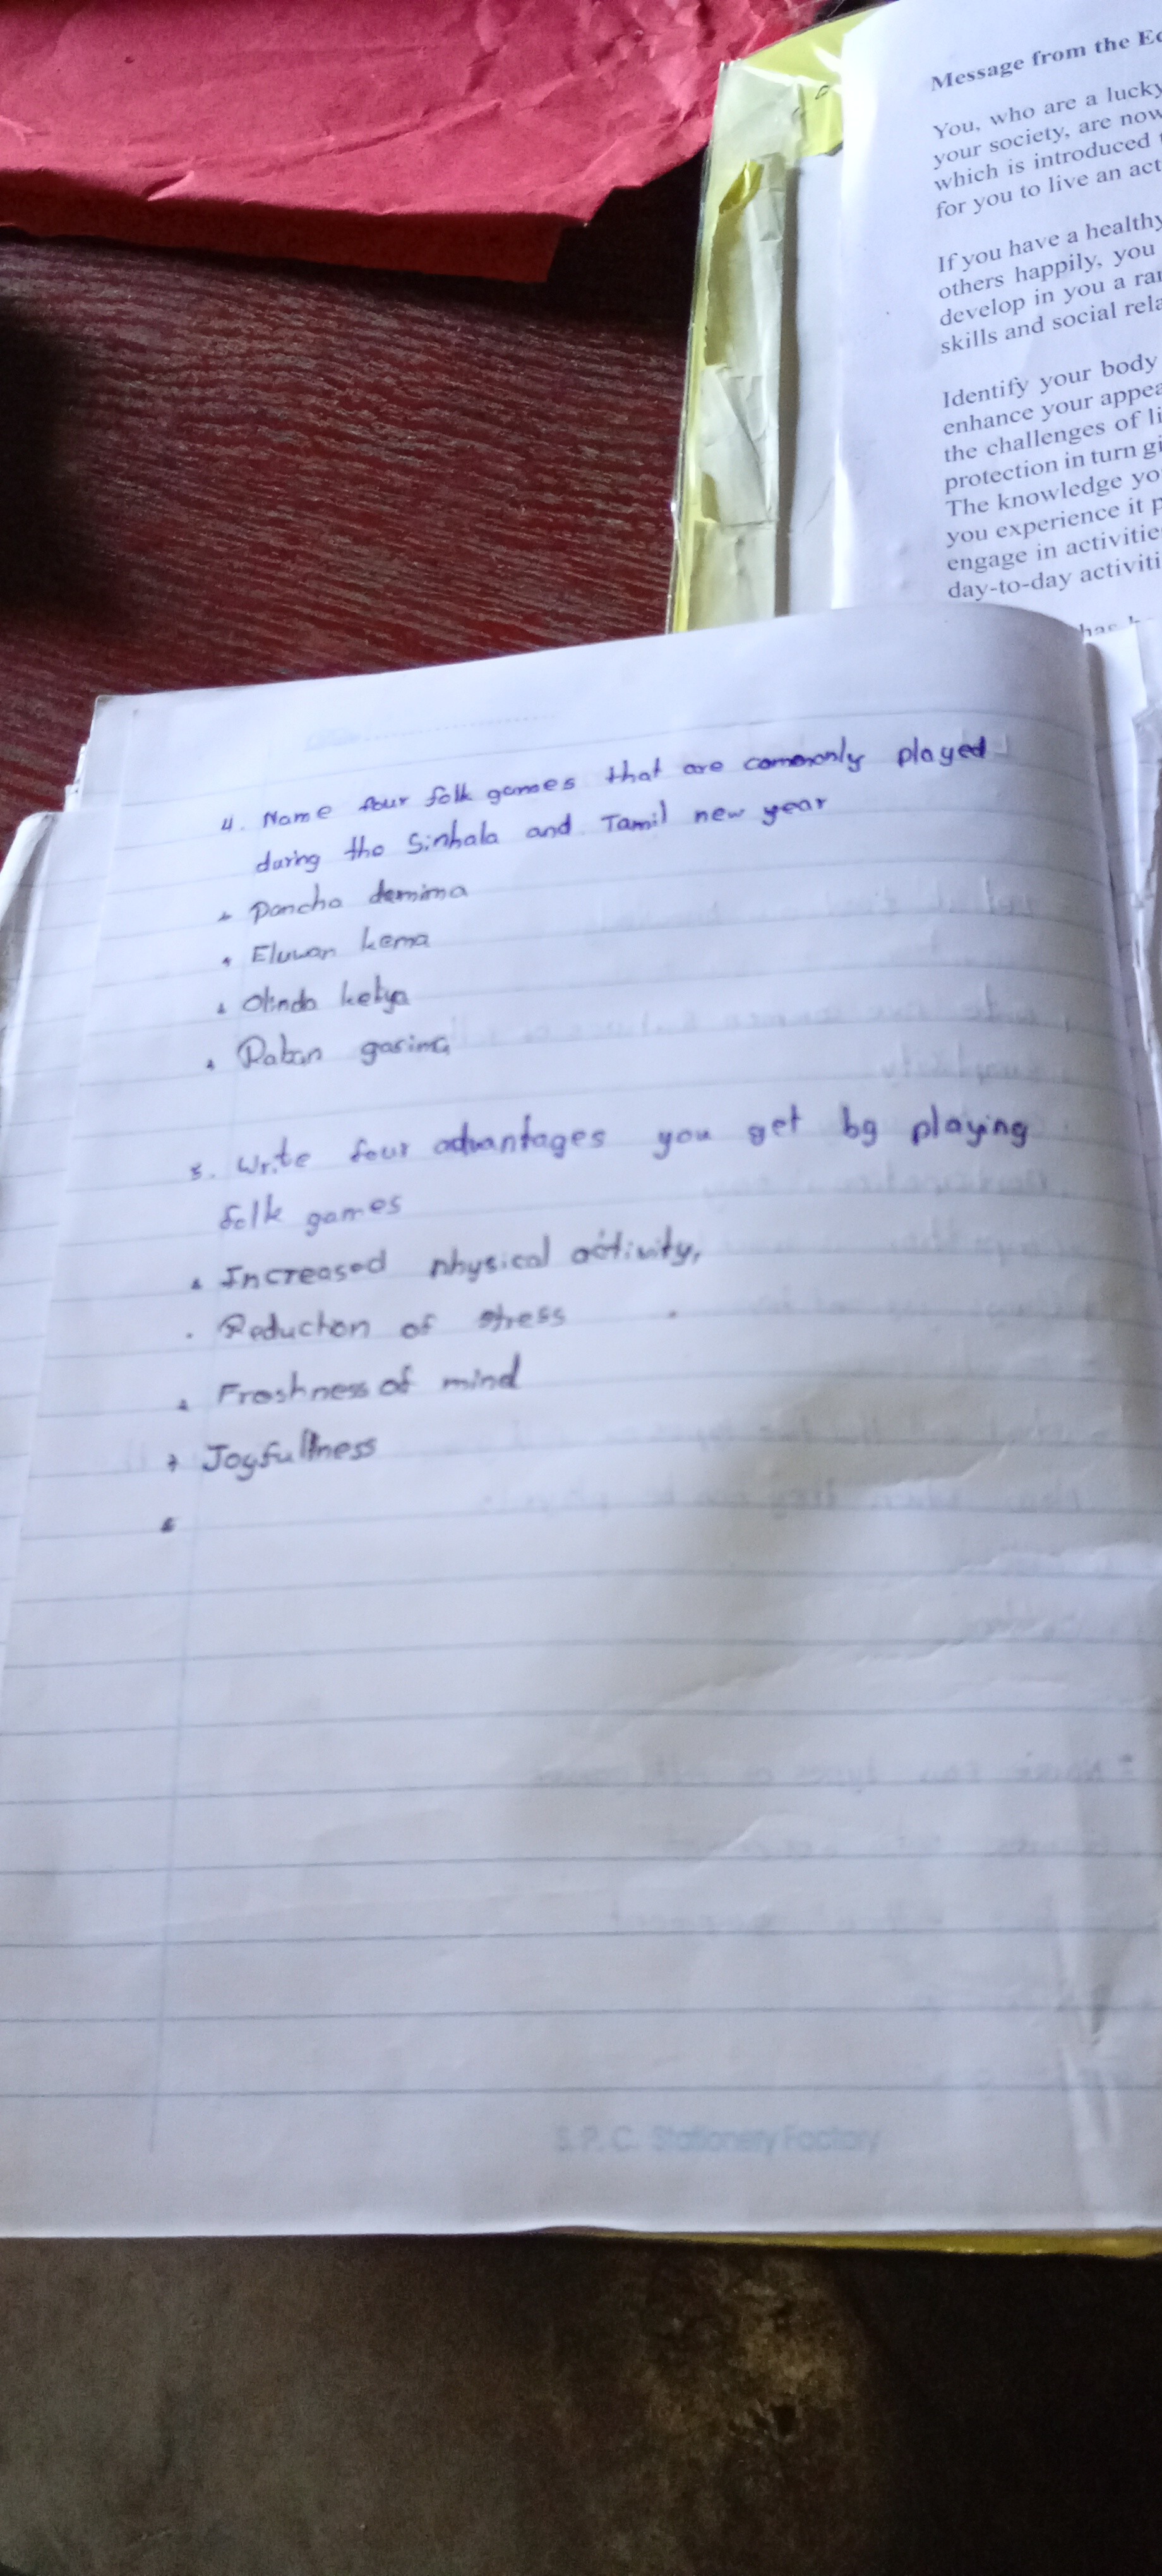 Message from the Ed
You, who are a lucky
your society, are now
which is introduced
for you to live an act
If you have a healthy
others happily, you
develop in you a ran
skills and social rela
Identify your body
enhance your appea
the challenges of li
protection in turn gi
The knowledge yo
you experience it p
engage in activitie
day-to-day activiti
has
4. Name four folk games that are commonly played
during the Sinhala and Tamil new year
Pancha demima
Eluwan kema
Olinda keliya
Raban gasima
5. Write four advantages you get by playing
folk games
Increased physical activity,
Reduction of stress
Freshness of mind
Joyfullness
S. P. C. Stationery Factory